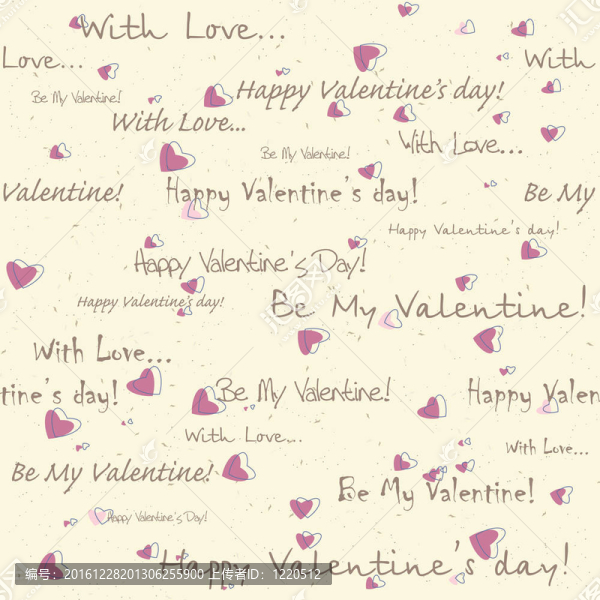 With Love...
Love...
With
Be My Valentine!
Happy Valentine's day!
With Love...
With Love...
Be My Valentine!
Valentine!
Happy Valentine's day!
Be My
Happy Valentine's day!
Happy Valentine's Day!
Happy Valentine's day!
Be My Valentine!
With Love...
tine's day!
Be My Valentine!
Happy Valen
With Love...
With Love...
Be My Valentine!
Be My Valentine!
Happy Valentine's Day!
Happy Valentine's day!
编号：20161228201306255900 上传者ID：1220512